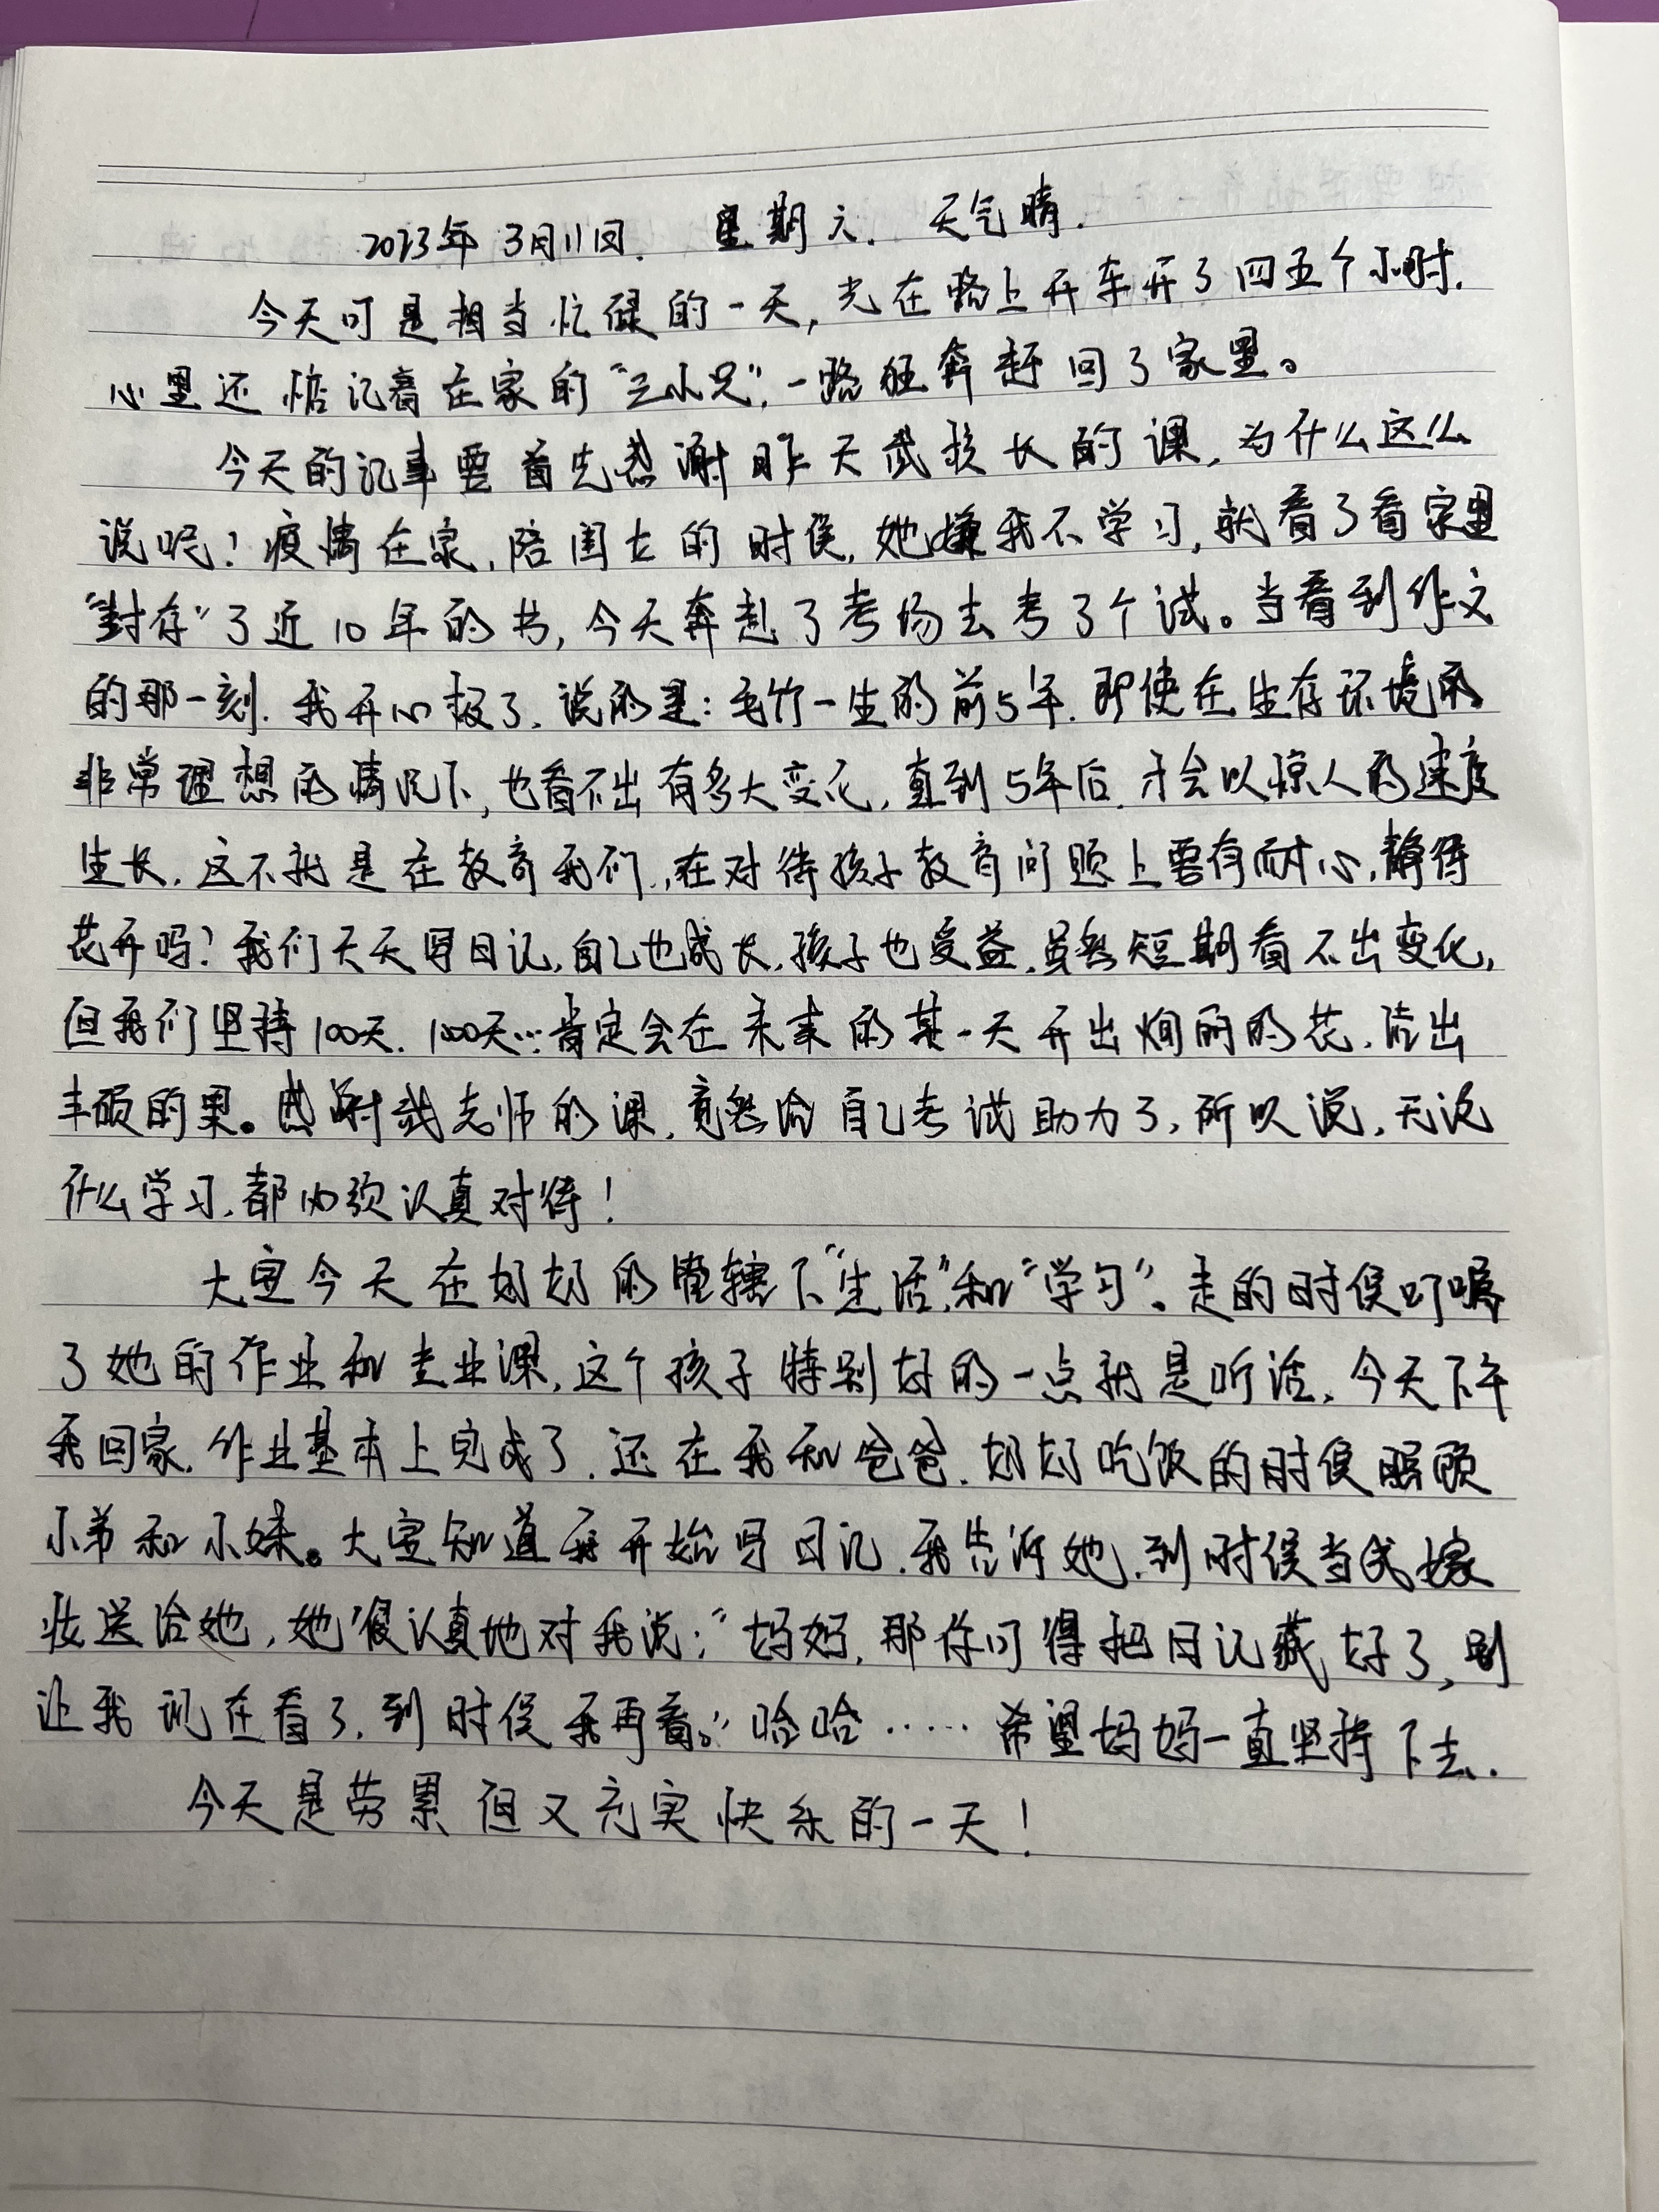 2023年3月11日. 星期六. 天气晴.
今天可是相当忙碌的一天,光在路上开车开了四五个小时.
心里还惦记着在家的“三小只”,一路狂奔赶回了家里。
今天的记事要首先感谢昨天武校长的课,为什么这么
说呢?疫情在家,陪闺女的时候,她嫌我不学习,就看了看家里
“封存”了近10年的书,今天奔赴了考场去考了个试。当看到作文
的那一刻.我开心极了.说的是:毛竹一生的前5年.即使在生存环境的
非常理想的情况下,也看不出有多大变化,直到5年后.才会以惊人的速度
生长.这不就是在教育我们,在对待孩子教育问题上要有耐心,静待
花开吗?我们天天写日记,自己也成长,孩子也受益.虽然短期看不出变化,
但我们坚持100天.1000天…肯定会在未来的某一天开出绚丽的花.结出
丰硕的果。感谢武老师的课,竟然给自己考试助力了,所以说,无论
什么学习,都必须认真对待!
大宝今天在奶奶的管辖下“生活”和“学习”。走的时候叮嘱
了她的作业和专业课,这个孩子特别好的一点就是听话,今天下午
我回家.作业基本上完成了.还在我和爸爸.奶奶吃饭的时候照顾
小弟和小妹。大宝知道我开始写日记.我告诉她.到时候当成嫁
妆送给她,她很认真地对我说:“妈妈,那你可得把日记藏好了,别
让我现在看了.到时候我再看。”哈哈……希望妈妈一直坚持下去.
今天是劳累但又充实快乐的一天!